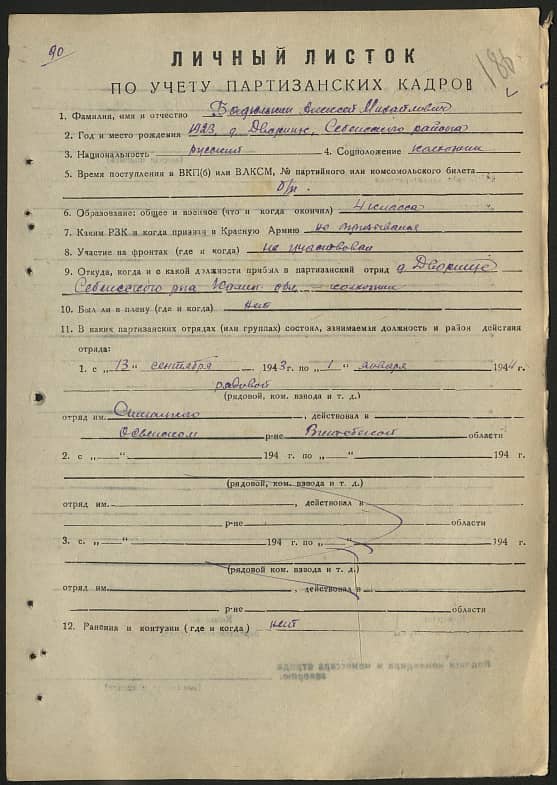 90
186
ЛИЧНЫЙ ЛИСТОК
ПО УЧЕТУ ПАРТИЗАНСКИХ КАДРОВ
1. Фамилия, имя и отчество Алексей Михайлович
2. Год и место рождения 1923, д. Дворище, Себежского района
3. Национальность русский 4. Соцположение колхозник
5. Время поступления в ВКП(б) или ВЛКСМ, № партийного или комсомольского билета
б/п.
6. Образование: общее и военное (что и когда окончил) 4 класса
7. Каким РЗК и когда призван в Красную Армию не призывался
8. Участие на фронтах (где и когда) не участвовал
9. Откуда, когда и с какой должности прибыл в партизанский отряд д. Дворище
Себежского р-на Калин. обл. — колхозник
10. Был ли в плену (где и когда) нет
11. В каких партизанских отрядах (или группах) состоял, занимаемая должность и район действия
отряда:
1. с „13“ сентября 1943 г. по „1“ января 1944 г.
рядовой
(рядовой, ком. взвода и т. д.)
отряд им. , действовал в
Освейском р-не Витебской области
2. с „—“ 194 г. по „—“ 194 г.
(рядовой, ком. взвода и т. д.)
отряд им. , действовал в
р-не области
3. с. „—“ 194 г. по „—“ 194 г.
(рядовой, ком. взвода и т. д.)
отряд им. , действовал в
р-не области
12. Ранения и контузии (где и когда) нет